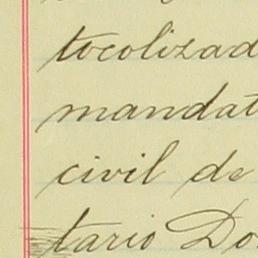 tocolizad
mandat
civil de
tario Do